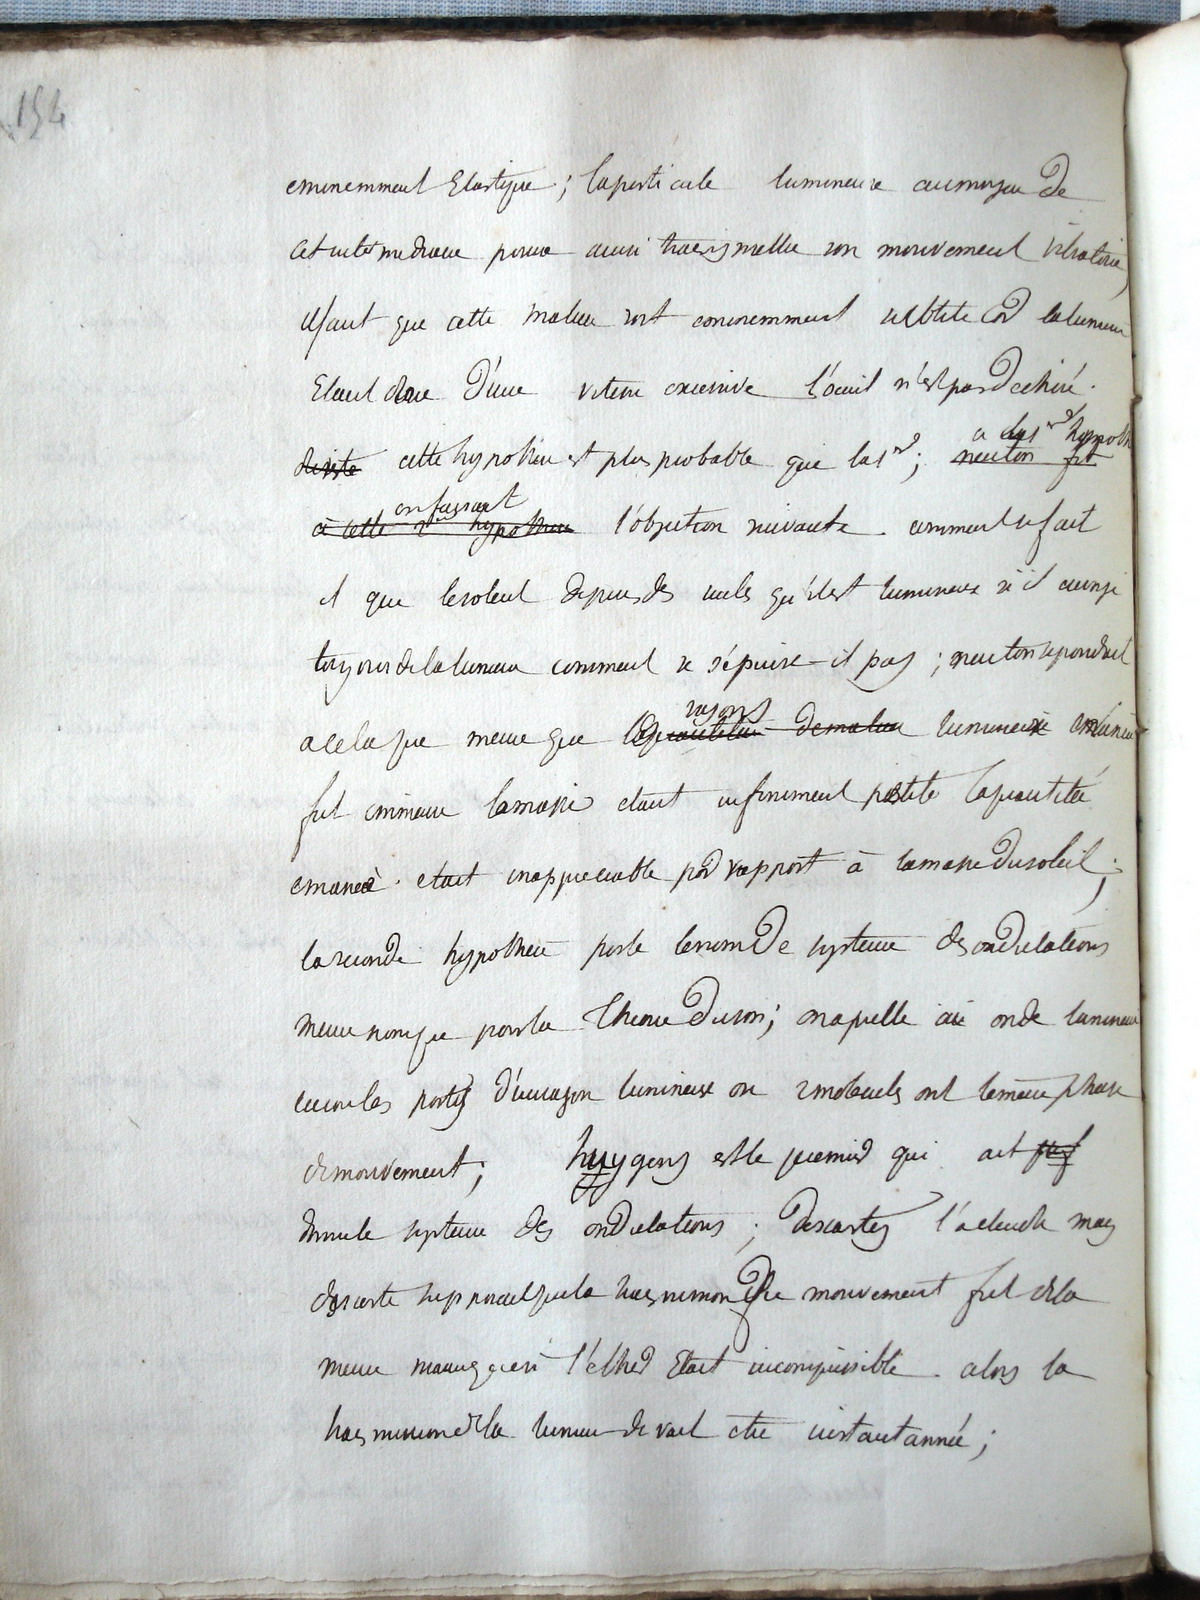 154
eminemment Elastique ; la particule lumineuse au moyen de
cet intermediaire pourra ainsi transmettre son mouvement vibratoire,
il faut que cette matiere soit eminemment subtile car la lumiere
Etant doue d'une vitesse excessive l'oeuil n'est pas dechiré.
cette hypothese est plus probable que la 1re ; newton fit
a la 1re hypoth
à cette 1re hypothese l'objection suivante. comment se fait
en faisant
il que le soleil depuis des siecles qu'il est lumineux s'il envoye
toujours de la lumiere comment ne s'épuise-il pas ; newton repondait
a cela que meme que la quantité de matiere lumineuse
rayons
fut immense la masse etant infiniment petite la quantitée
emaneé etait inappreciable par rapport à la masse du soleil ;
la seconde hypothese porte le nom de systeme des ondulations
meme nom que pour la theorie du son ; on apelle onde lumineuse
toutes les parties d'un rayon lumineux ou 2 molecules ont la même phase
de mouvement ; huygens est le premier qui ait
donné le systeme des ondulations ; descartes mais
descarte supposait que la transmission de mouvement fut de la
meme maniere que si l'ether Etait incompressible. alors la
transmission de la lumiere devait etre instantannée ;